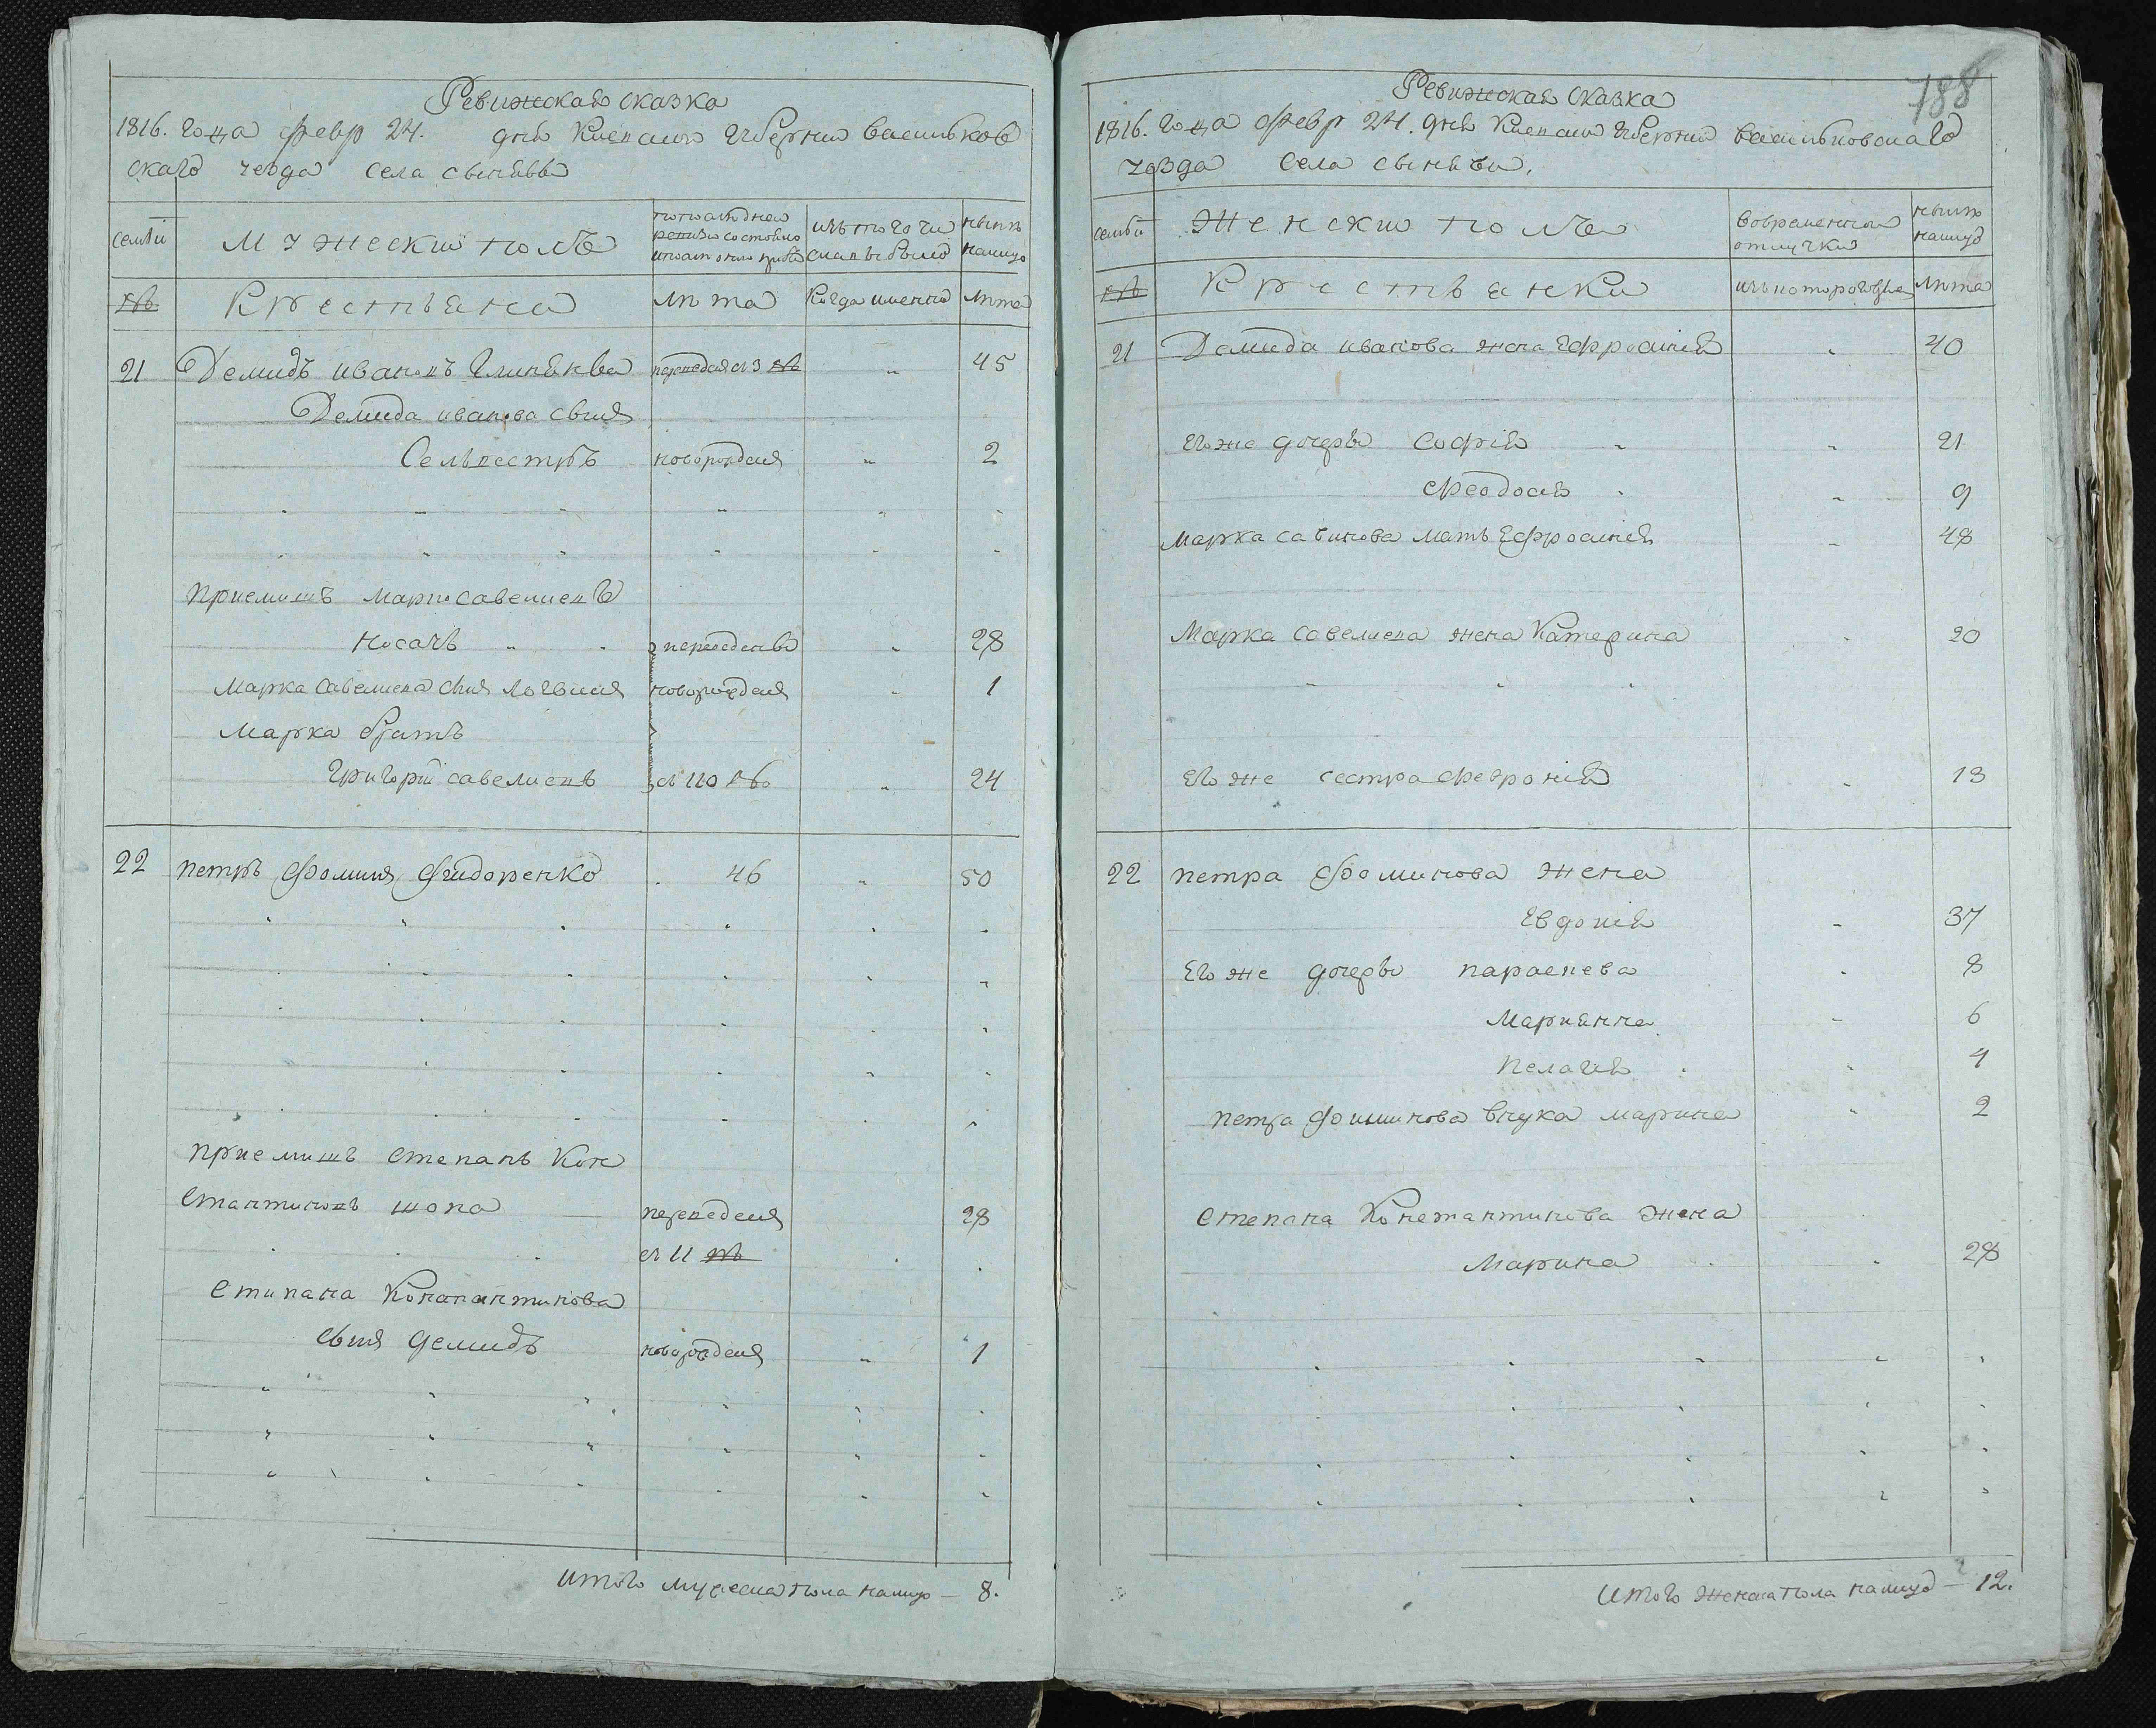 Ревижская сказка
1816. года февр 24. дня Киевской Губернии васильков
скаго уезда села сынявы
семьи
мужеский полъ
по последней ревизіи состояло
изъ того числа выбыло
нынѣ налицо
№
Крестьяне
лѣта
когда именно
лѣта
21 Демидъ ивановъ Глинянко переведенъ съ 3 № „ 45
Демида иванова сынъ
Селвестръ новорожденъ „ 2
приемышъ марко савелиевъ
носачъ переведены 28
марка савелиева сынъ логвинъ новорожденъ 1
марка братъ
григорій савелиевъ съ 110 № „ 24
22 петръ фоминъ Фидоренко 46 „ 50
приемышъ степанъ Кон
стантиновъ шопа переведенъ 28
съ 11 №
степана Константинова
сынъ демидъ новорожденъ „ 1
итого мужеска пола налицо — 8.
788
Ревижская сказка
1816. года февр 24. дня Киевской Губернии васильковскаго
уезда села сынявы,
семьи
женский полъ
во временной отлучке
нынѣ налицо
№
Крестьянки
изъ котораго время
лѣта
21 Демида иванова жена Ефросинія 40
его же дочери софія 21
феодосия 9
марка савинова мать Ефросинія 48
марка савелиева жена Катерина 20
его же сестра февронія 13
22 петра фоминова жена
евдокія 37
его же дочери парасцева 8
Марианна 6
пелагия 4
петра фоминова внука марина 2
степана Константинова жена
марина 28
итого женска пола налицо — 12.